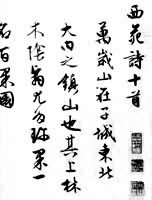 西苑詩十首
萬歲山在子城東北
大内之鎮山也其上林
木陰翁尤多珍果一
名百果園